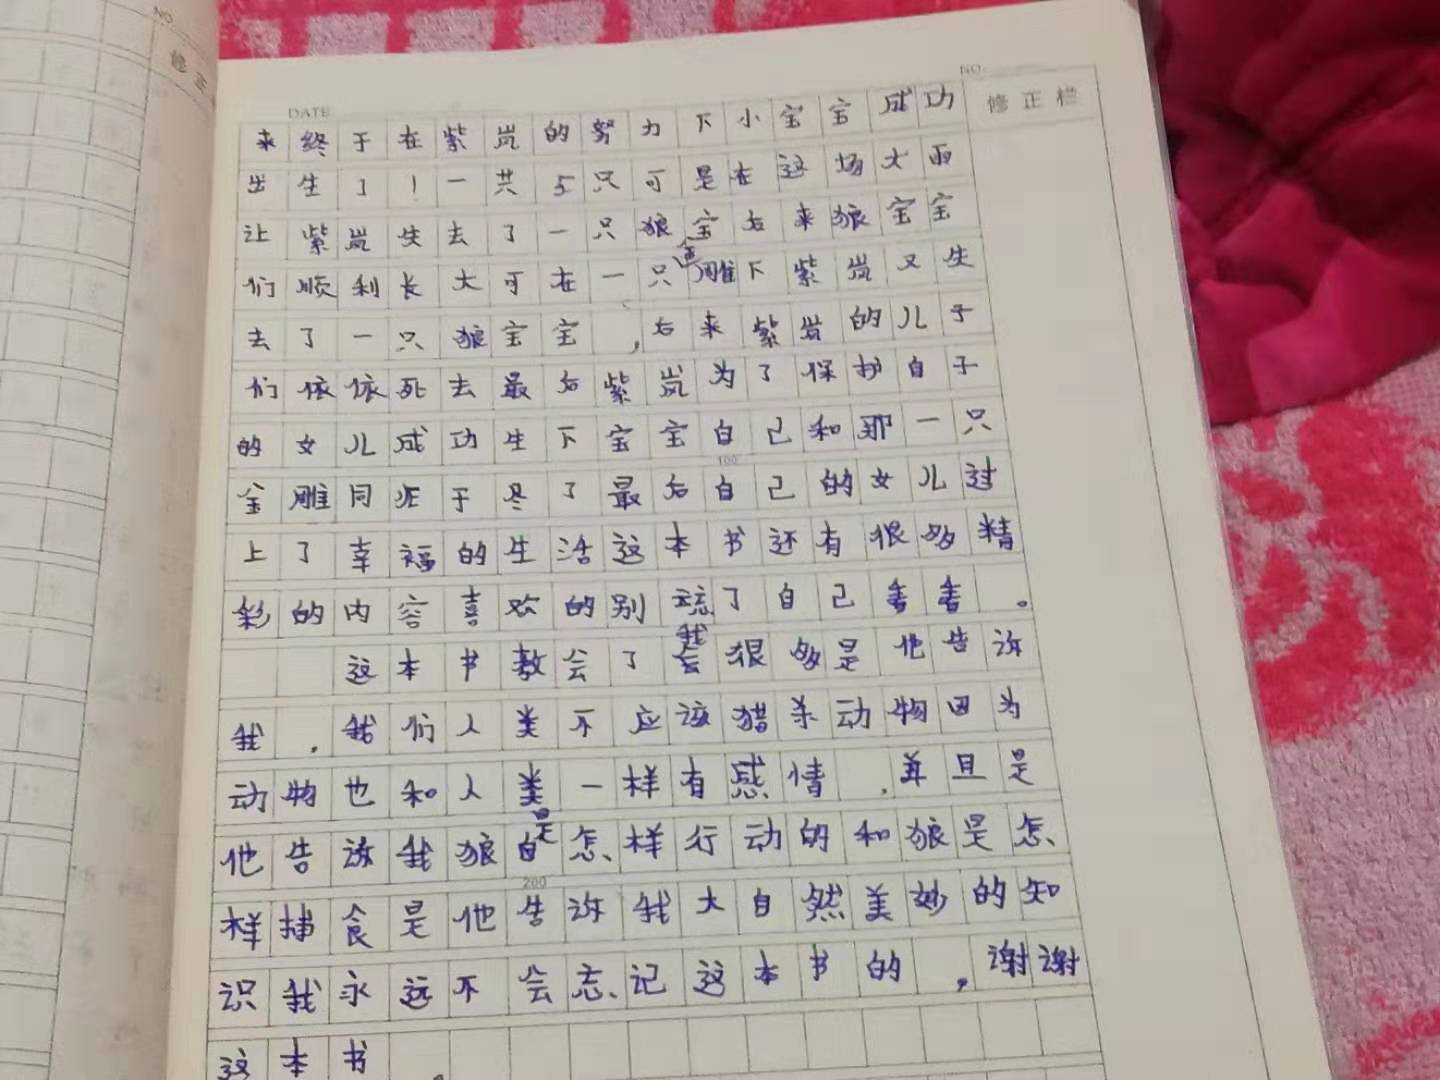 NO.
修正
DATE
NO.
修正栏
来终于在紫岚的努力下小宝宝成功
出生了！一共5只可是在这场大雨
让紫岚失去了一只狼宝后来狼宝宝
们顺利长大可在一只雕下紫岚又失
去了一只狼宝宝，后来紫岚的儿子
们依依死去最后紫岚为了保护自子
的女儿成功生下宝宝自己和那一只
100
金雕同归于尽了最后自己的女儿过
上了幸福的生活这本书还有很多精
彩的内容喜欢的别忘了自己看看。
这本书教会了我很多是他告诉
我，我们人类不应该猎杀动物因为
动物也和人类一样有感情，并且是
他告诉我狼是怎样行动的和狼是怎
200
样捕食是他告诉我大自然美妙的知
识我永远不会忘记这本书的，谢谢
这本书。